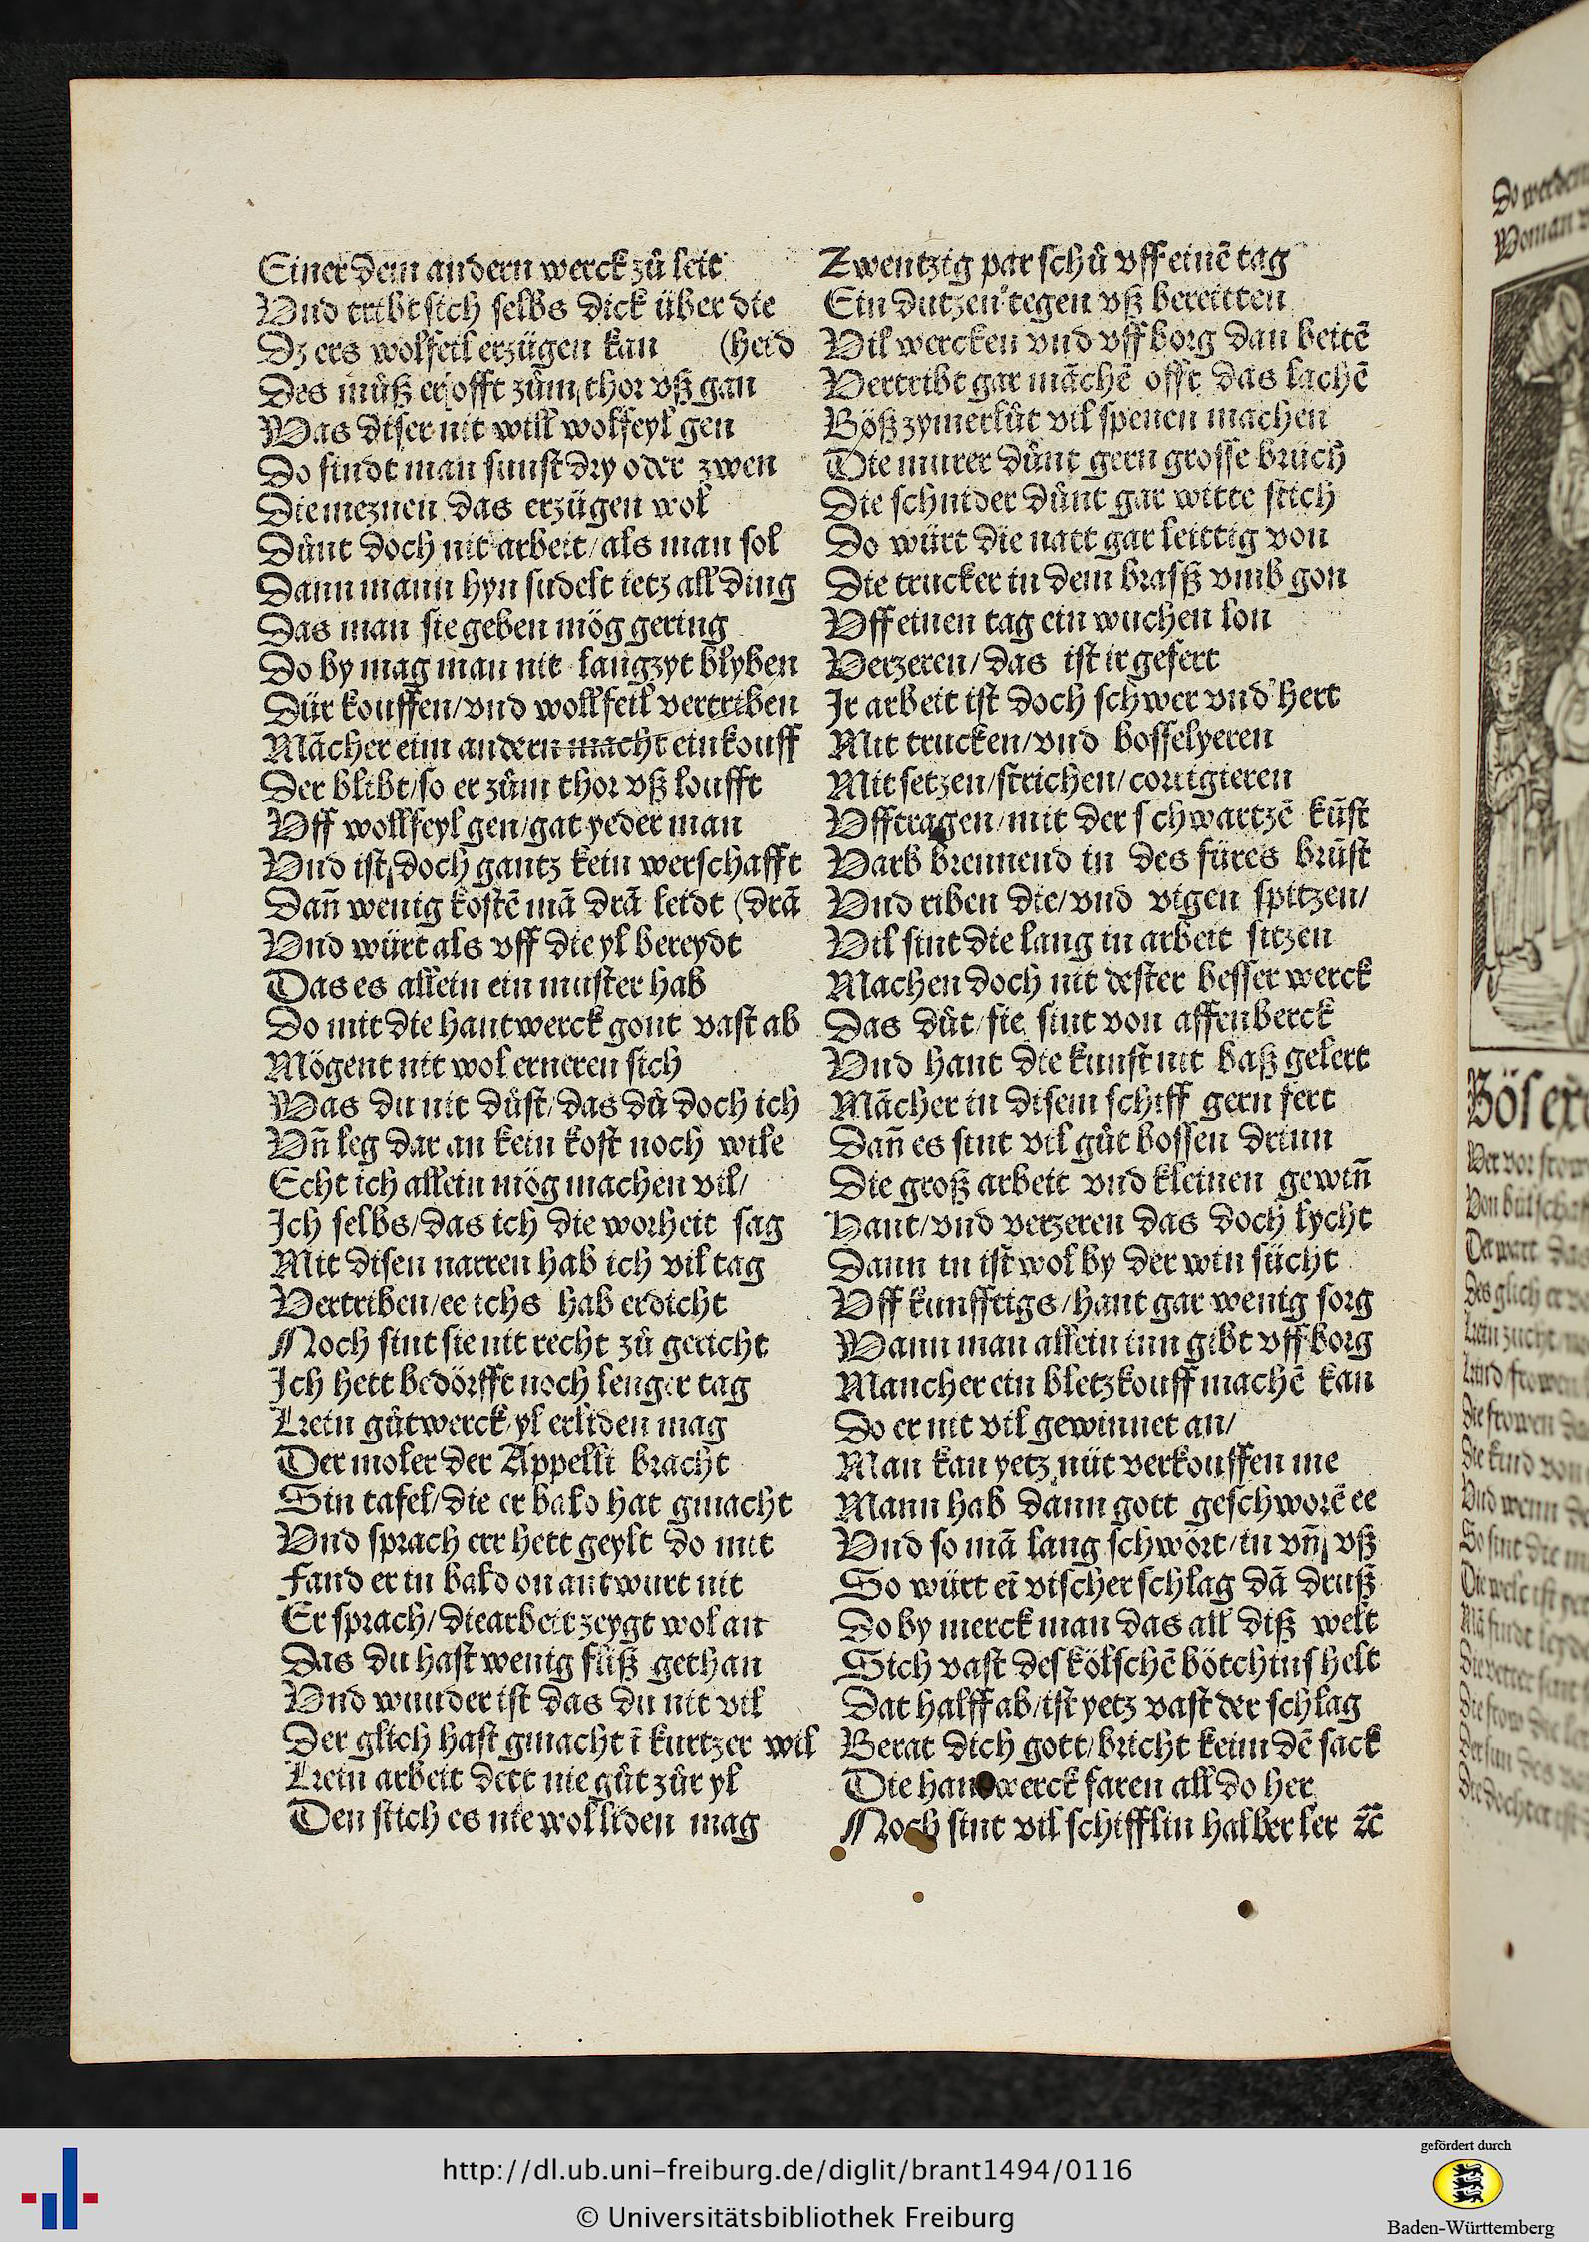 Einer dem andern werck zů leit
Vnd tribt sich selbs dick über die
Dz ers wolfeil erzügen kan (heid
Des můß er offt zům thor vß gan
Was diser nit will wolfeyl gen
Do findt man sunst dry oder zwen
Die meznen das erzügen wol
Důnt doch nit arbeit/als man sol
Dann mann hyn sudelt ietz all ding
Das man sie geben mög gering
Do by mag man nit langzyt blyben
Dür kouffen/vnd wollfeil vertriben
Mācher eim andern macht ein kouff
Der blibt/so er zům thor vß loufft
Vff wollfeyl gen/gat yeder man
Vnd ist doch gantz kein werschafft
Dañ wenig kostē mā drā leidt (drā
Vnd würt als vff die yl bereydt
Das es allein ein muster hab
Do mit die hantwerck gont vast ab
Mögent nit wol erneren sich
Was du nit důst/das dů doch ich
Vñ leg dar an kein kost noch wile
Echt ich allein mög machen vil/
Ich selbs/das ich die worheit sag
Mit disen narren hab ich vil tag
Vertriben/ee ichs hab erdicht
Noch sint sie nit recht zů gericht
Ich hett bedörfft noch lenger tag
Kein gůt werck yl erliden mag
Der moler der Appelli bracht
Sin tafel/die er bald hat gmacht
Vnd sprach err hett geylt do mit
Fand er in bald on antwurt nit
Er sprach/die arbeit zeygt wol an
Das du hast wenig flüß gethan
Vnd wunder ist das du nit vil
Der glich hast gmacht ī kurtzer wil
Kein arbeit dett nie gůt zůr yl
Den stich es nie wol liden mag
Zwentzig par schů vff einē tag
Ein dutzen tegen vß bereitten
Vil wercken vnd vff borg dan beitē
Vertribt gar māchē offt das lachē
Böß zymerlůt vil spenen machen
Die murer důnt gern grosse brüch
Die schnider důnt gar witte stich
Do würt die natt gar leittig von
Die trucker in dem brasß vmb gon
Vff einen tag ein wuchen lon
Verzeren/das ist ir gefert
Ir arbeit ist doch schwer vnd hert
Mit trucken/vnd bosselyeren
Mit setzen/strichen/corrigieren
Vfftragen/mit der schwartzē kūst
Varb brennend in des füres brūst
Vnd riben die/vnd vigen spitzen/
Vil sint die lang in arbeit sitzen
Machen doch nit dester besser werck
Das důt/sie sint von affenberck
Vnd hant die kunst nit baß gelert
Mācher in disem schiff gern fert
Dañ es sint vil gůt bossen drinn
Die groß arbeit vnd kleinen gewiñ
Hant/vnd verzeren das doch lycht
Dann in ist wol by der win sücht
Vff kunfftigs/hant gar wenig sorg
Wann man allein inn gibt vff borg
Mancher ein bletzkouff machē kan
Do er nit vil gewinnet an/
Man kan yetz nüt verkouffen me
Mann hab dann gott geschworē ee
Vnd so mā lang schwört/in vñ vß
So würt eī vischer schlag dā druß
Do by merck man das all diß welt
Sich vast des kölschē bötchins helt
Dat halff ab/ist yetz vast der schlag
Berat dich gott/bricht keim dē sack
Die hantwerck faren all do her
Noch sint vil schifflin halber ler ⁊c̄
Do werden
Woman
Böser
Wer vor frow
Von bůlschaf
Der wart das
http://dl.ub.uni-freiburg.de/diglit/brant1494/0116
© Universitätsbibliothek Freiburg
gefördert durch
Baden-Württemberg